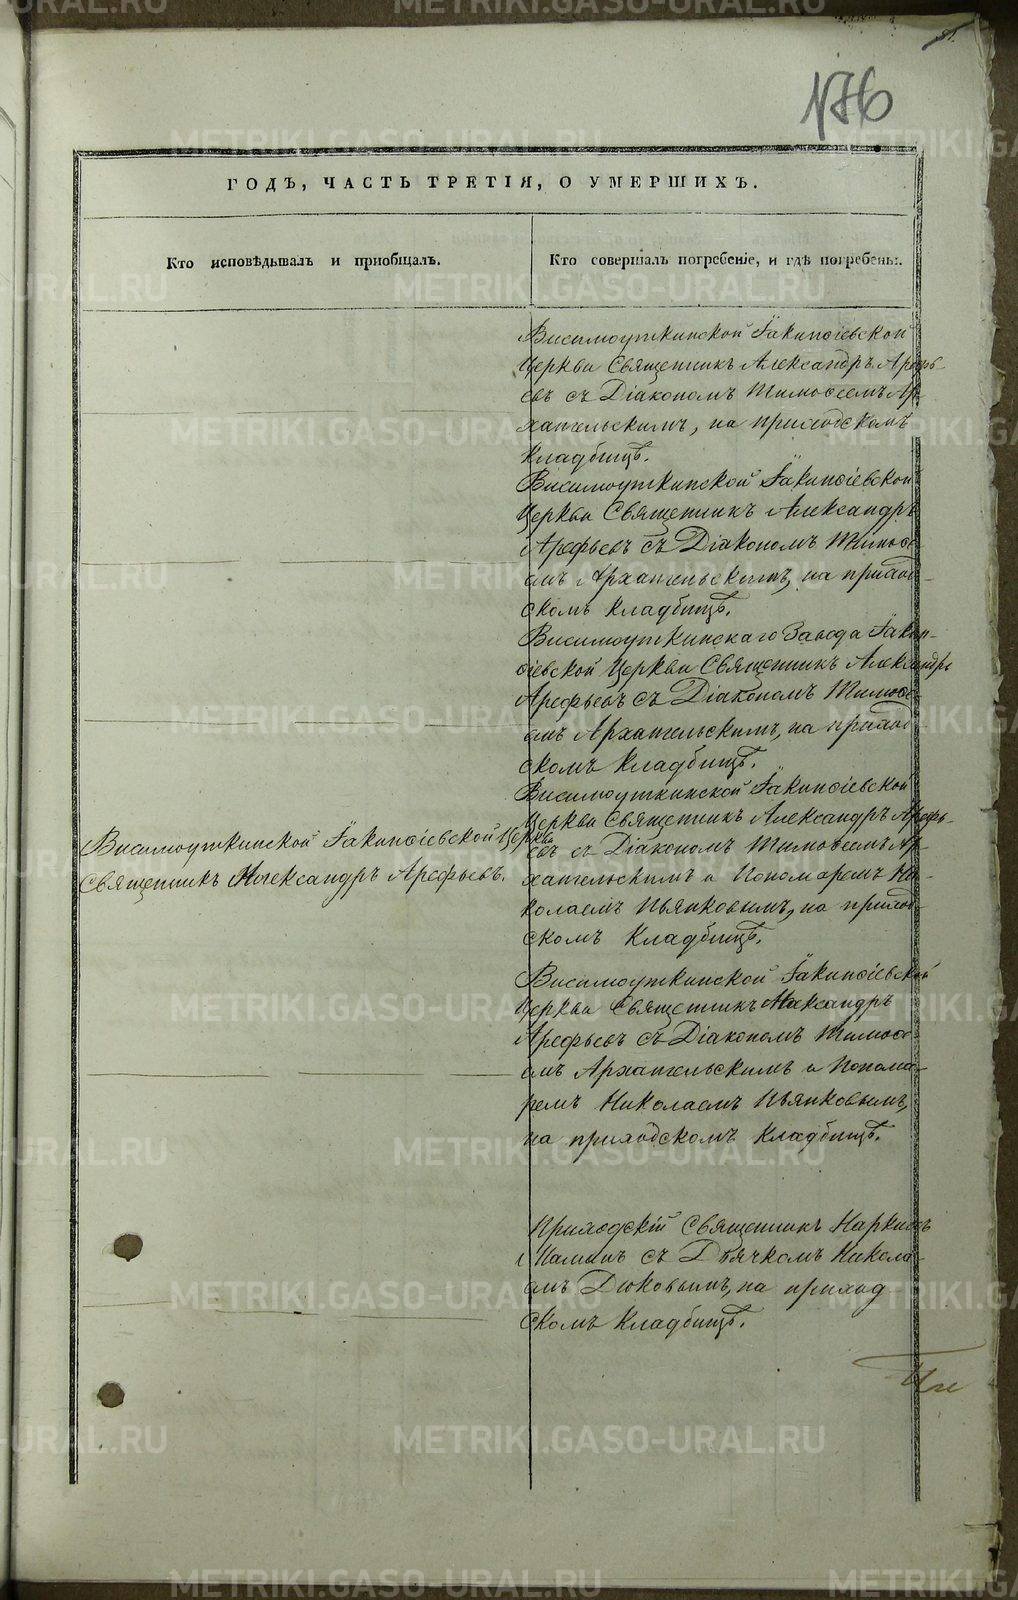 176
ГОДЪ, ЧАСТЬ ТРЕТІЯ, О УМЕРШИХЪ.
Кто исповѣдывалъ и пріобщалъ.
Кто совершалъ погребеніе, и гдѣ погребены.
Висимоуткинской Іакинѳіевской
Церкви Священникъ Александръ Арефь-
евъ съ Діакономъ Тимоѳеемъ Ар-
хангельскимъ, на приходскомъ
кладбищѣ.
Висимоуткинской Іакинѳіевской
Церкви Священникъ Александръ
Арефьевъ съ Діакономъ Тимоѳе-
емъ Архангельскимъ, на приход-
скомъ кладбищѣ.
Висимоуткинскаго Завода Іакин-
ѳіевской Церкви Священникъ Александръ
Арефьевъ съ Діакономъ Тимоѳе-
емъ Архангельскимъ, на приход-
скомъ кладбищѣ.
Висимоуткинской Іакинѳіевской Церкви
Священникъ Александръ Арефьевъ.
Висимоуткинской Іакинѳіевской
Церкви Священникъ Александръ Арефь-
евъ съ Діакономъ Тимоѳеемъ Ар-
хангельскимъ и Пономаремъ Ни-
колаемъ Пьянковымъ, на приход-
скомъ кладбищѣ.
Висимоуткинской Іакинѳіевской
Церкви Священникъ Александръ
Арефьевъ съ Діакономъ Тимоѳе-
емъ Архангельскимъ и Понома-
ремъ Николаемъ Пьянковымъ,
на приходскомъ кладбищѣ.
Приходскій Священникъ Наркисъ
съ Дьячкомъ Никола-
емъ Дюковымъ, на приход
скомъ кладбищѣ.
METRIKI.GASO-URAL.RU